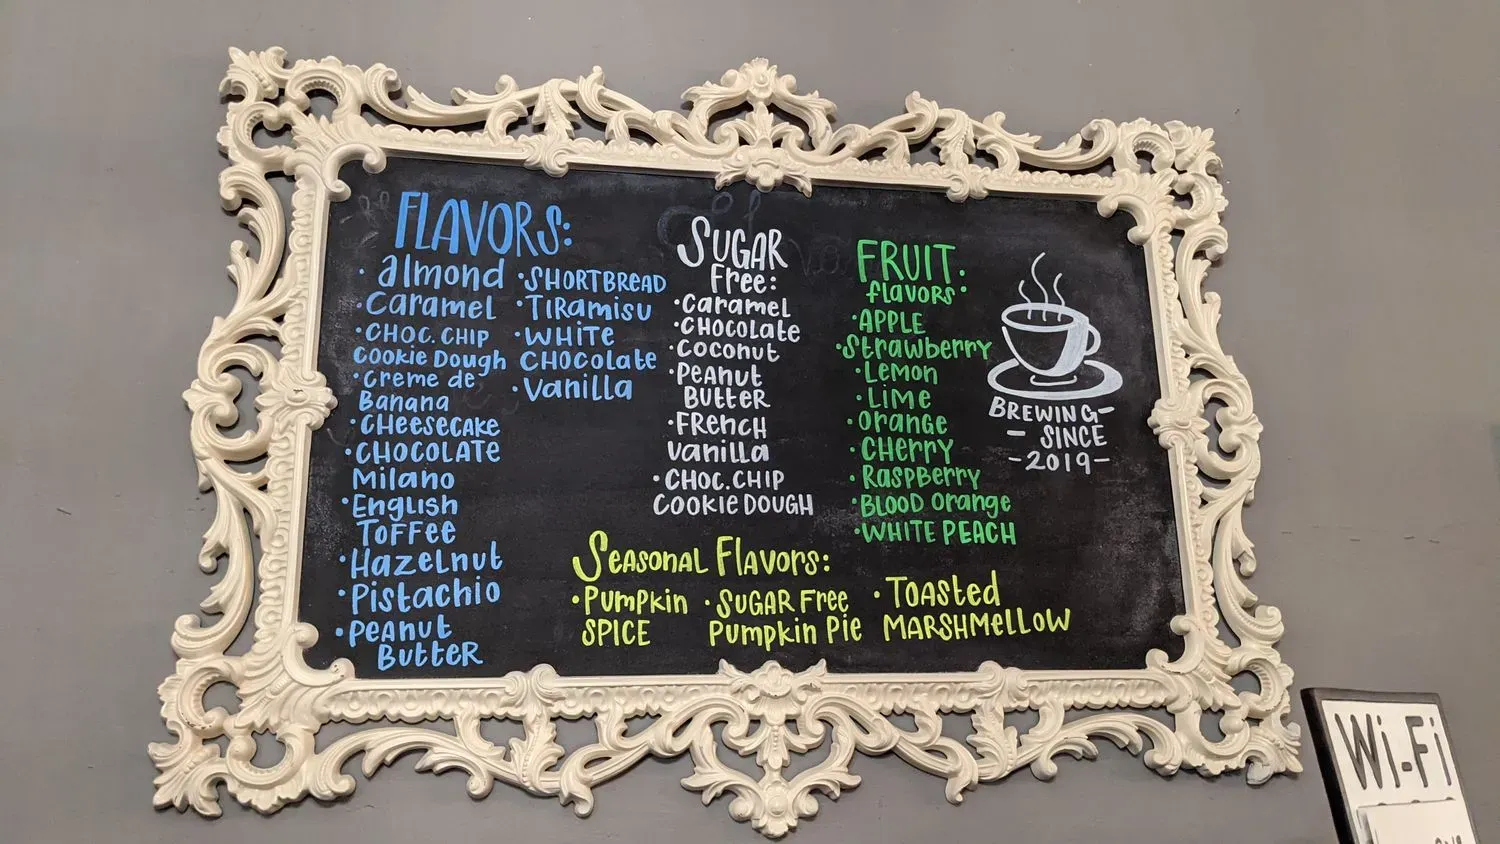 FLAVORS:
· almond
· Caramel
· CHOC. CHIP
Cookie Dough
· Creme de
Banana
· CHeeseCAKe
· CHOCOLATE
Milano
· English
TOFFee
· Hazelnut
· Pistachio
· PeAnut
ButteR
· SHORTBREAD
· TIRamisu
· WHiTe
CHOColate
· Vanilla
SUGAR
Free:
· Caramel
· CHOColate
· Coconut
· PeAnut
ButteR
· FRencH
vanilla
· CHOC. CHIP
COOKIE DOUGH
FRUIT
flavors:
· APPLE
· Strawberry
· Lemon
· Lime
· Orange
· CHeRRY
· RaspBerry
· BLOOD Orange
· WHITE PEACH
BREWING-
- SINCE
-2019-
Seasonal Flavors:
· PumPkin
SPICE
· SUGAR FRee
Pumpkin Pie
· TOAsted
MARSHMeLLOW
Wi-Fi